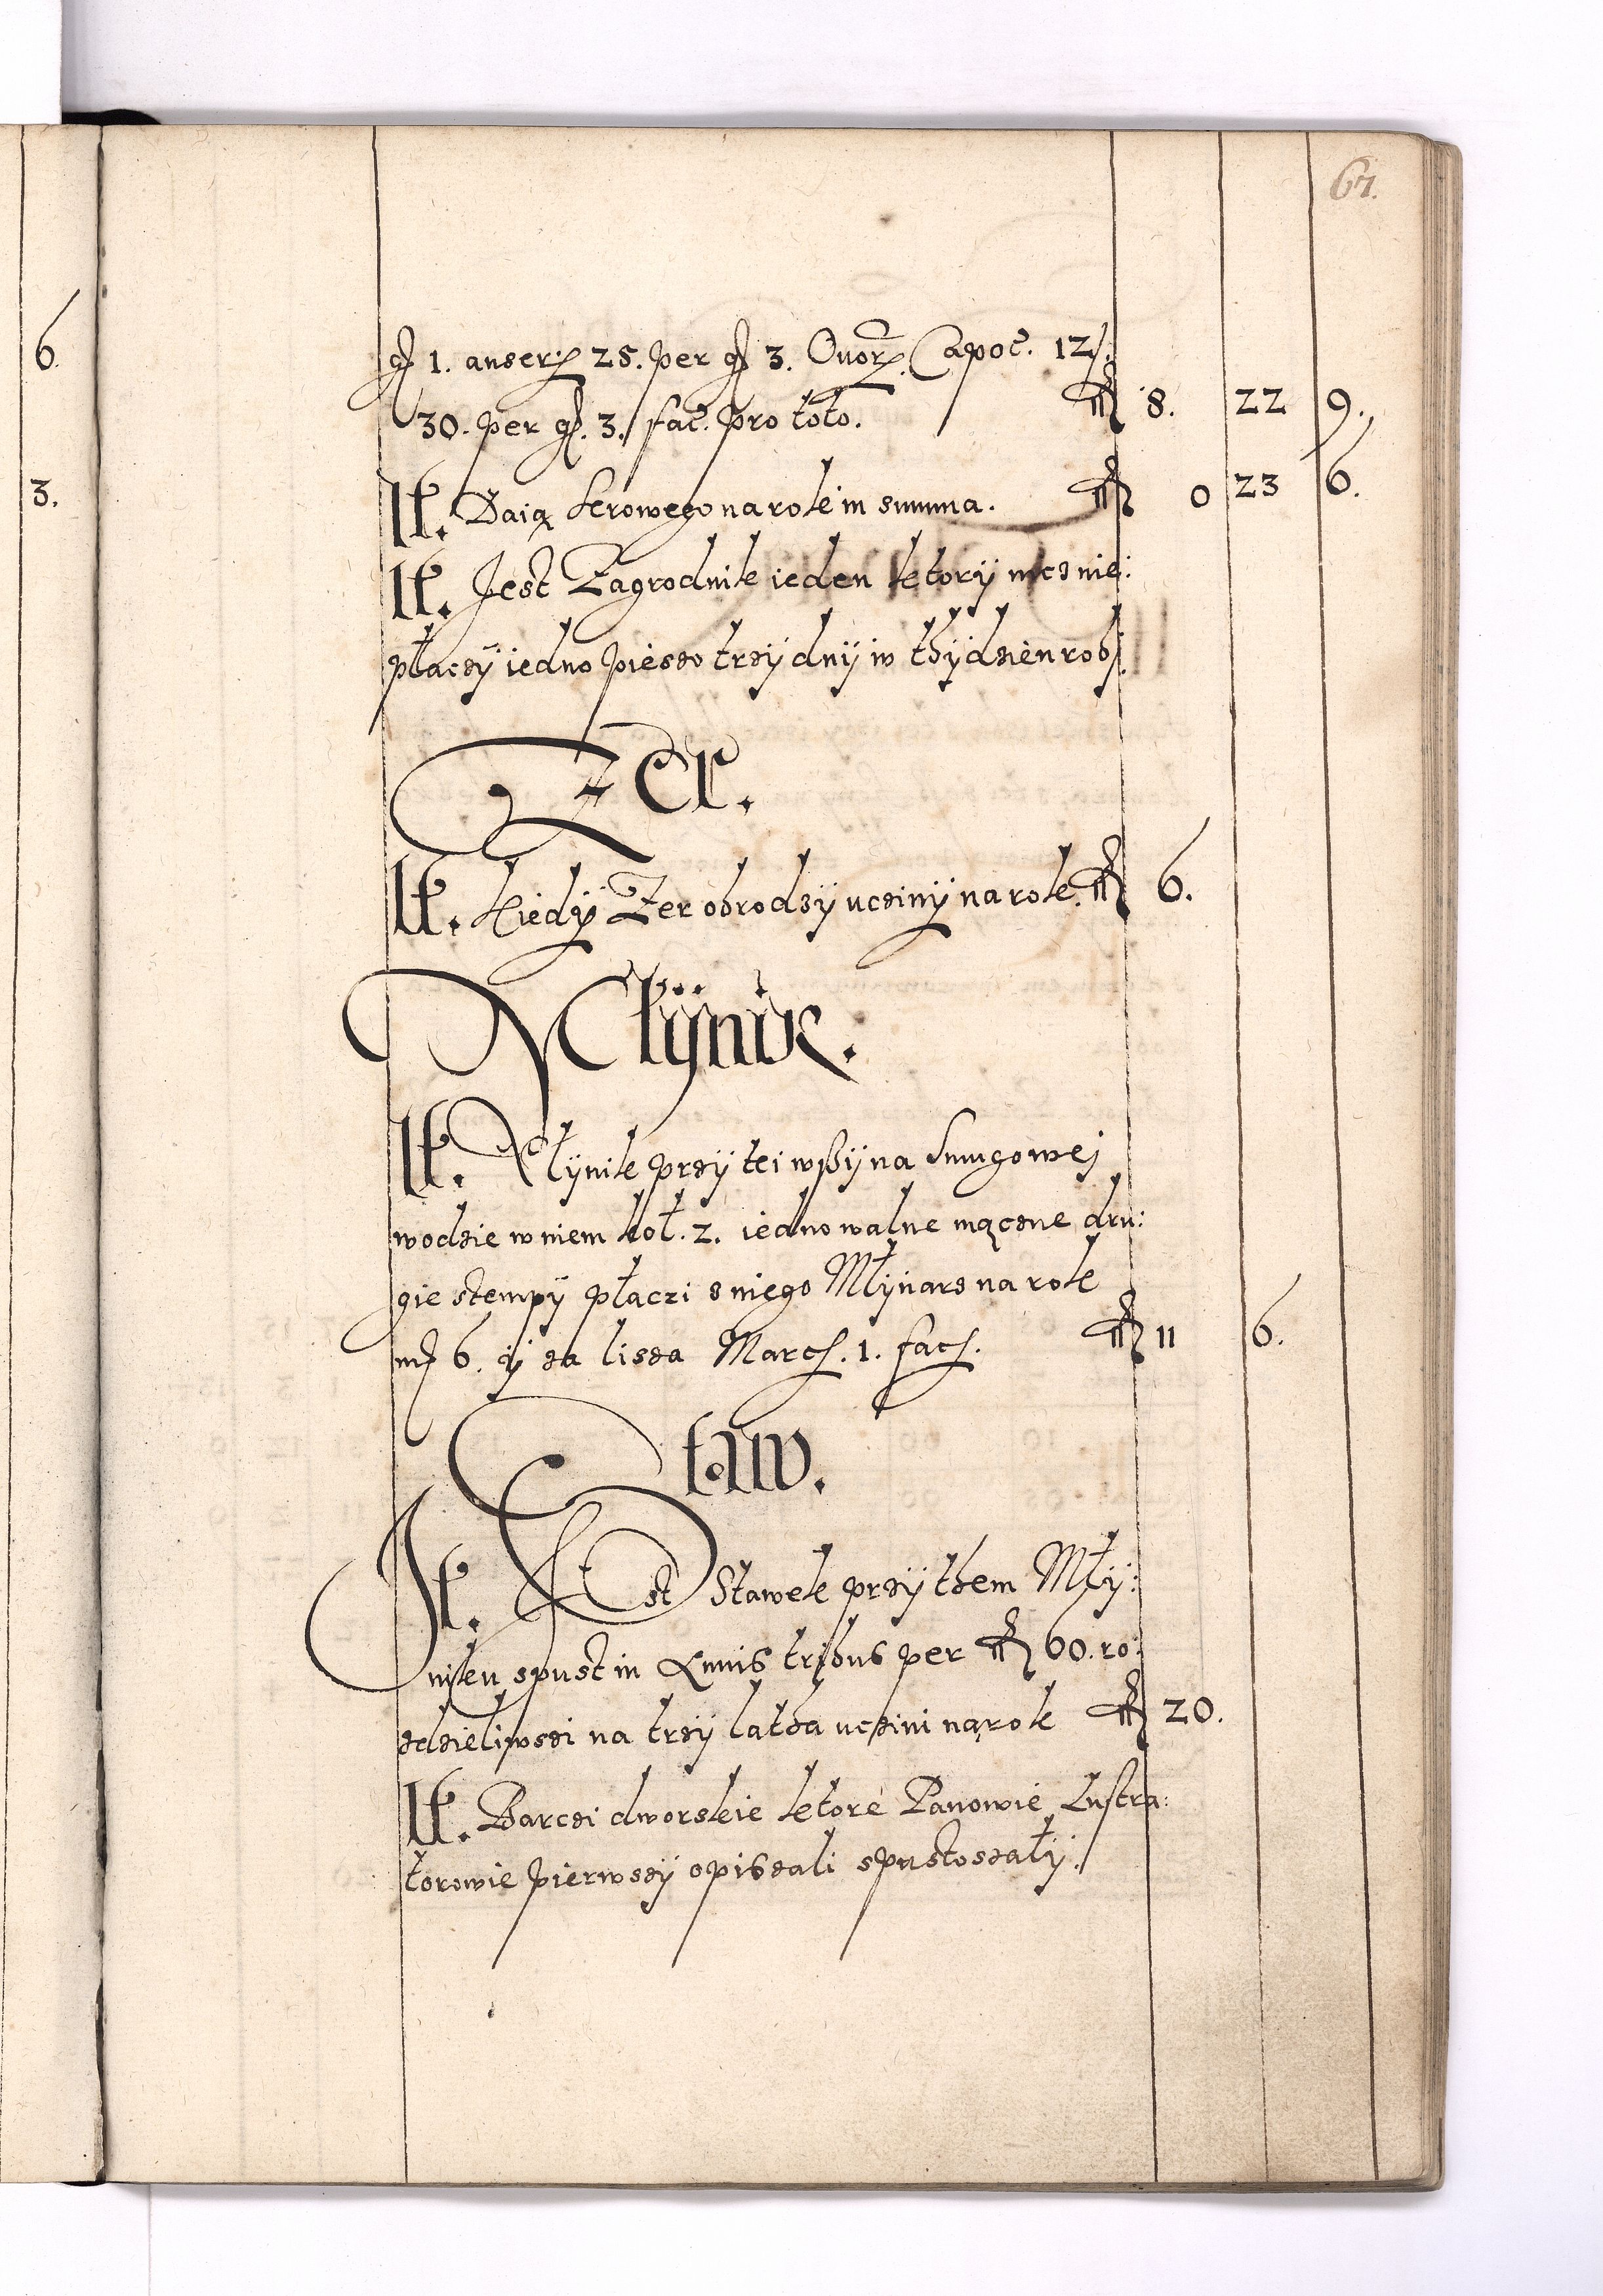 67.
6.
3.
gř 1. anserȝ 25. per gř 3. Ovorȝ. Capoē. 12/.
30. per gř. 3. fać. pro toto. fl 8. 22 9.
It. Daią serowego na rok in summa. fl 0 23 6.
It. Jest Zagrodnik ieden ktorÿ nicz nie:
płaczÿ iedno pieszo trzÿ dnÿ w tÿdzien robi.
Zer.
It. kiedÿ Zer obrodzÿ uczinÿ na rok. fl 6.
Młÿnik.
It. Młÿnik przÿ tei wßÿ na smugowej
wodzie w niem kół. 2. iedno walne mączne dru:
gie stempÿ płaczi z niego Młÿnarz na rok
mř 6. ÿ za lisza Marcř. 1. facř. fl 11 6.
Staw.
It. Jest Stawek przÿ them Młÿ:
niku spust in Annis tribus per fl 60. ro:
zdzieliwszi na trzÿ latha uczini na rok fl 20.
It. Barczi dworskie które Panowie Lustra:
torowie pierwszÿ opiszali spustoszałÿ.